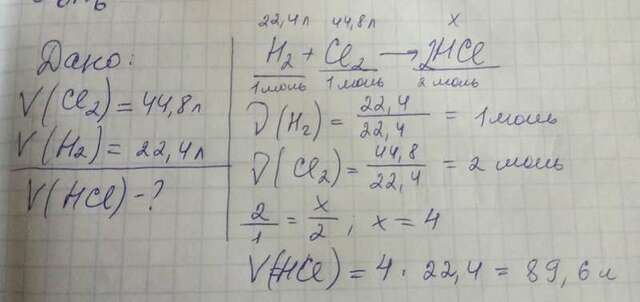 Дано:
V(Cl₂) = 44,8л
V(H₂) = 22,4л
V(HCl) - ?
22,4л 44,8л x
H₂ + Cl₂ → 2HCl
1моль 1моль 2 моль
ν(H₂) = 22,4/22,4 = 1моль
ν(Cl₂) = 44,8/22,4 = 2 моль
2/1 = x/2 ; x = 4
V(HCl) = 4 · 22,4 = 89,6 л